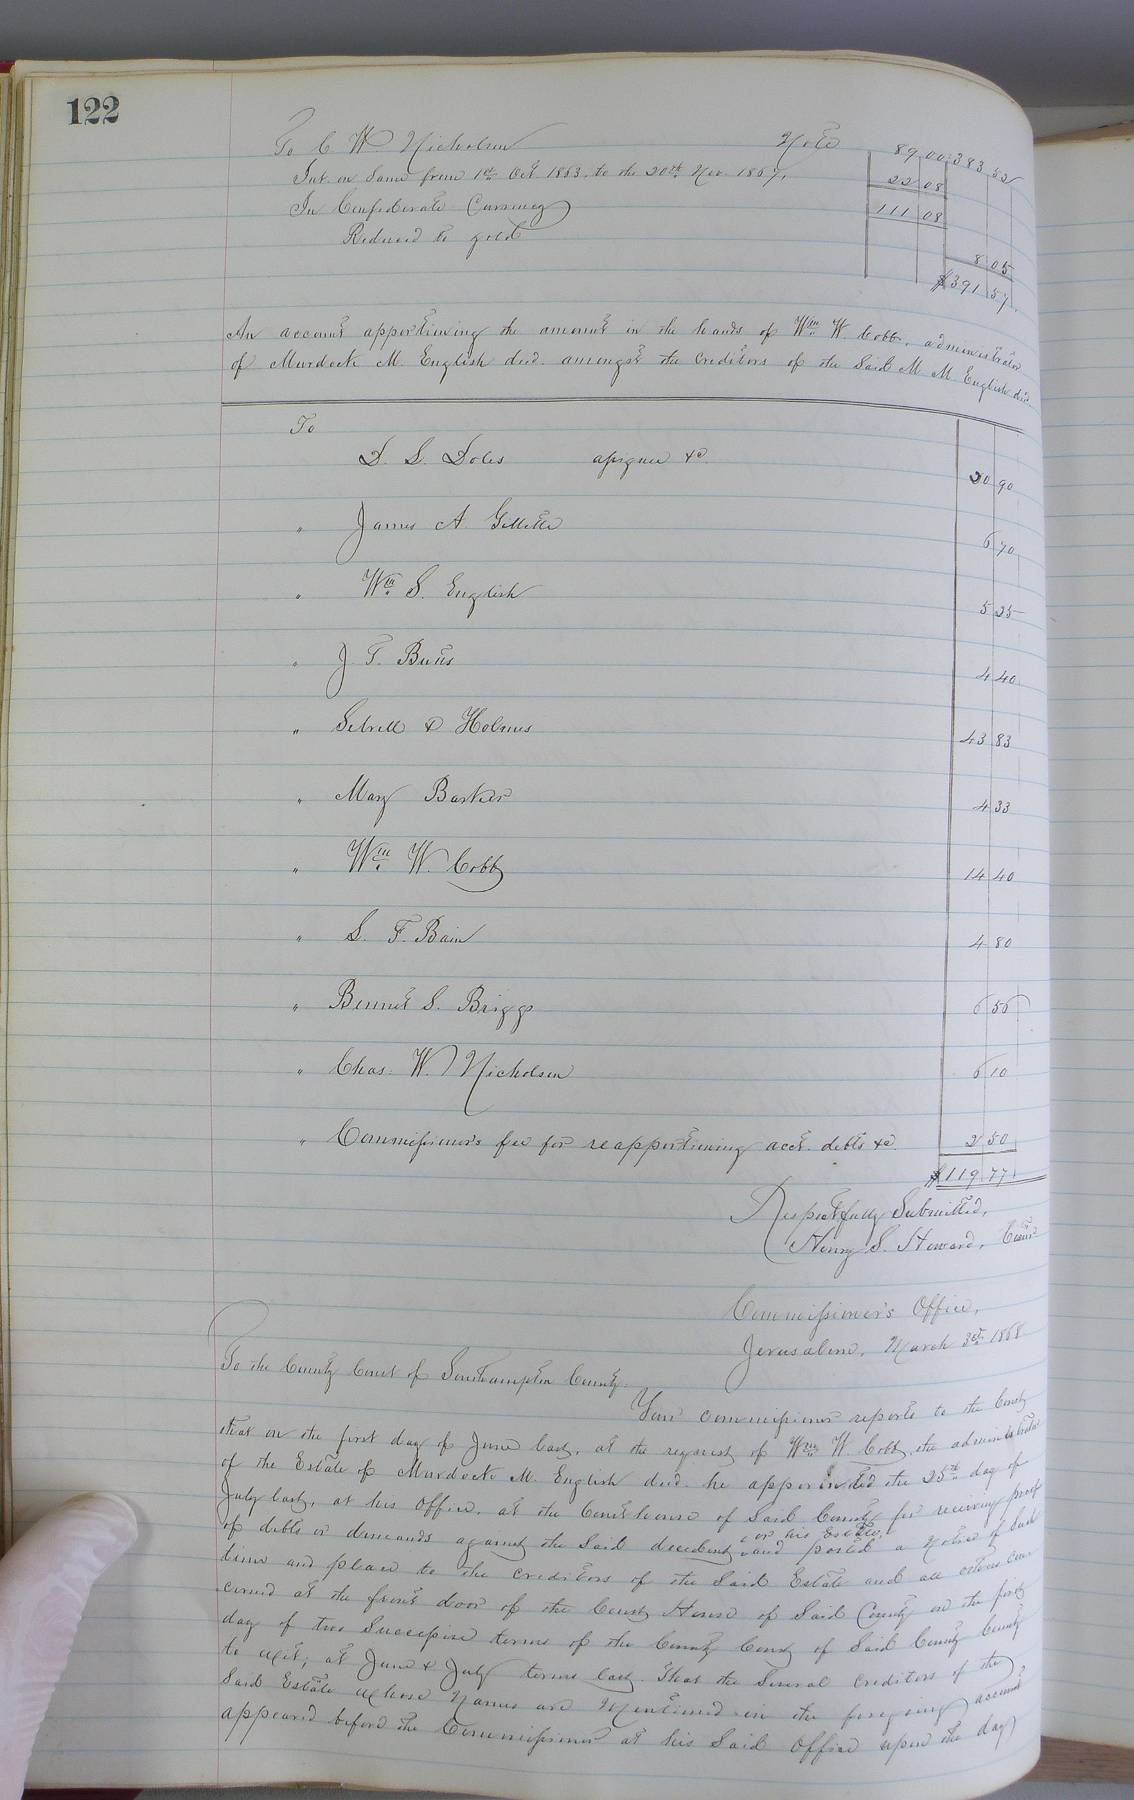 122
To C W Nicholson Note 89 00 383 52
Int. on Same from 1st Oct 1863. to the 20th Nov. 1867. 22 08
In Confederate Currency 111 08
Reduced to gold 8 05
$391 57
An account apportioning the amount in the hands of Wm W. Cobb, administrator
of Murdock M. English decd. amongst the Creditors of the Said M M English decd.
To
D. S. Doles assignee &c. 20 90
" James A. Gillette 6 70
" Wm S. English 5 25
" J. T. Butts 4 40
" Sebrell & Holmes 43 83
" Mary Barker 4 33
" Wm W. Cobb 14 40
" S. F. Bain 4 80
" Bennet S. Briggs 6 56
" Chas. W. Nicholson 6 10
" Commissioner's fee for reapportioning acct. debts &c. 2 50
$119 77
Respectfully Submitted,
Henry S. Howard, Comr
Commissioner's Office,
Jerusalem, March 3rd 1868
To the County Court of Southampton County.
Your commissioner reports to the Court
that on the first day of June last, at the request of Wm W. Cobb, the administrator
of the Estate of Murdock M. English decd. he appointed the 25th day of
July last, at his Office, at the Courthouse of Said County for receiving proof
of debts or demands against the Said decedent or his Estate, and posted a Notice of Such
time and place to the creditors of the Said Estate and all others con
cerned at the front door of the Court House of Said County on the first
day of two Successive terms of the County Court of Said County County
to wit; at June & July terms last. That the Several Creditors of the
Said Estate whose Names are Mentioned in the foregoing account
appeared before the Commissioner at his Said Office upon the day